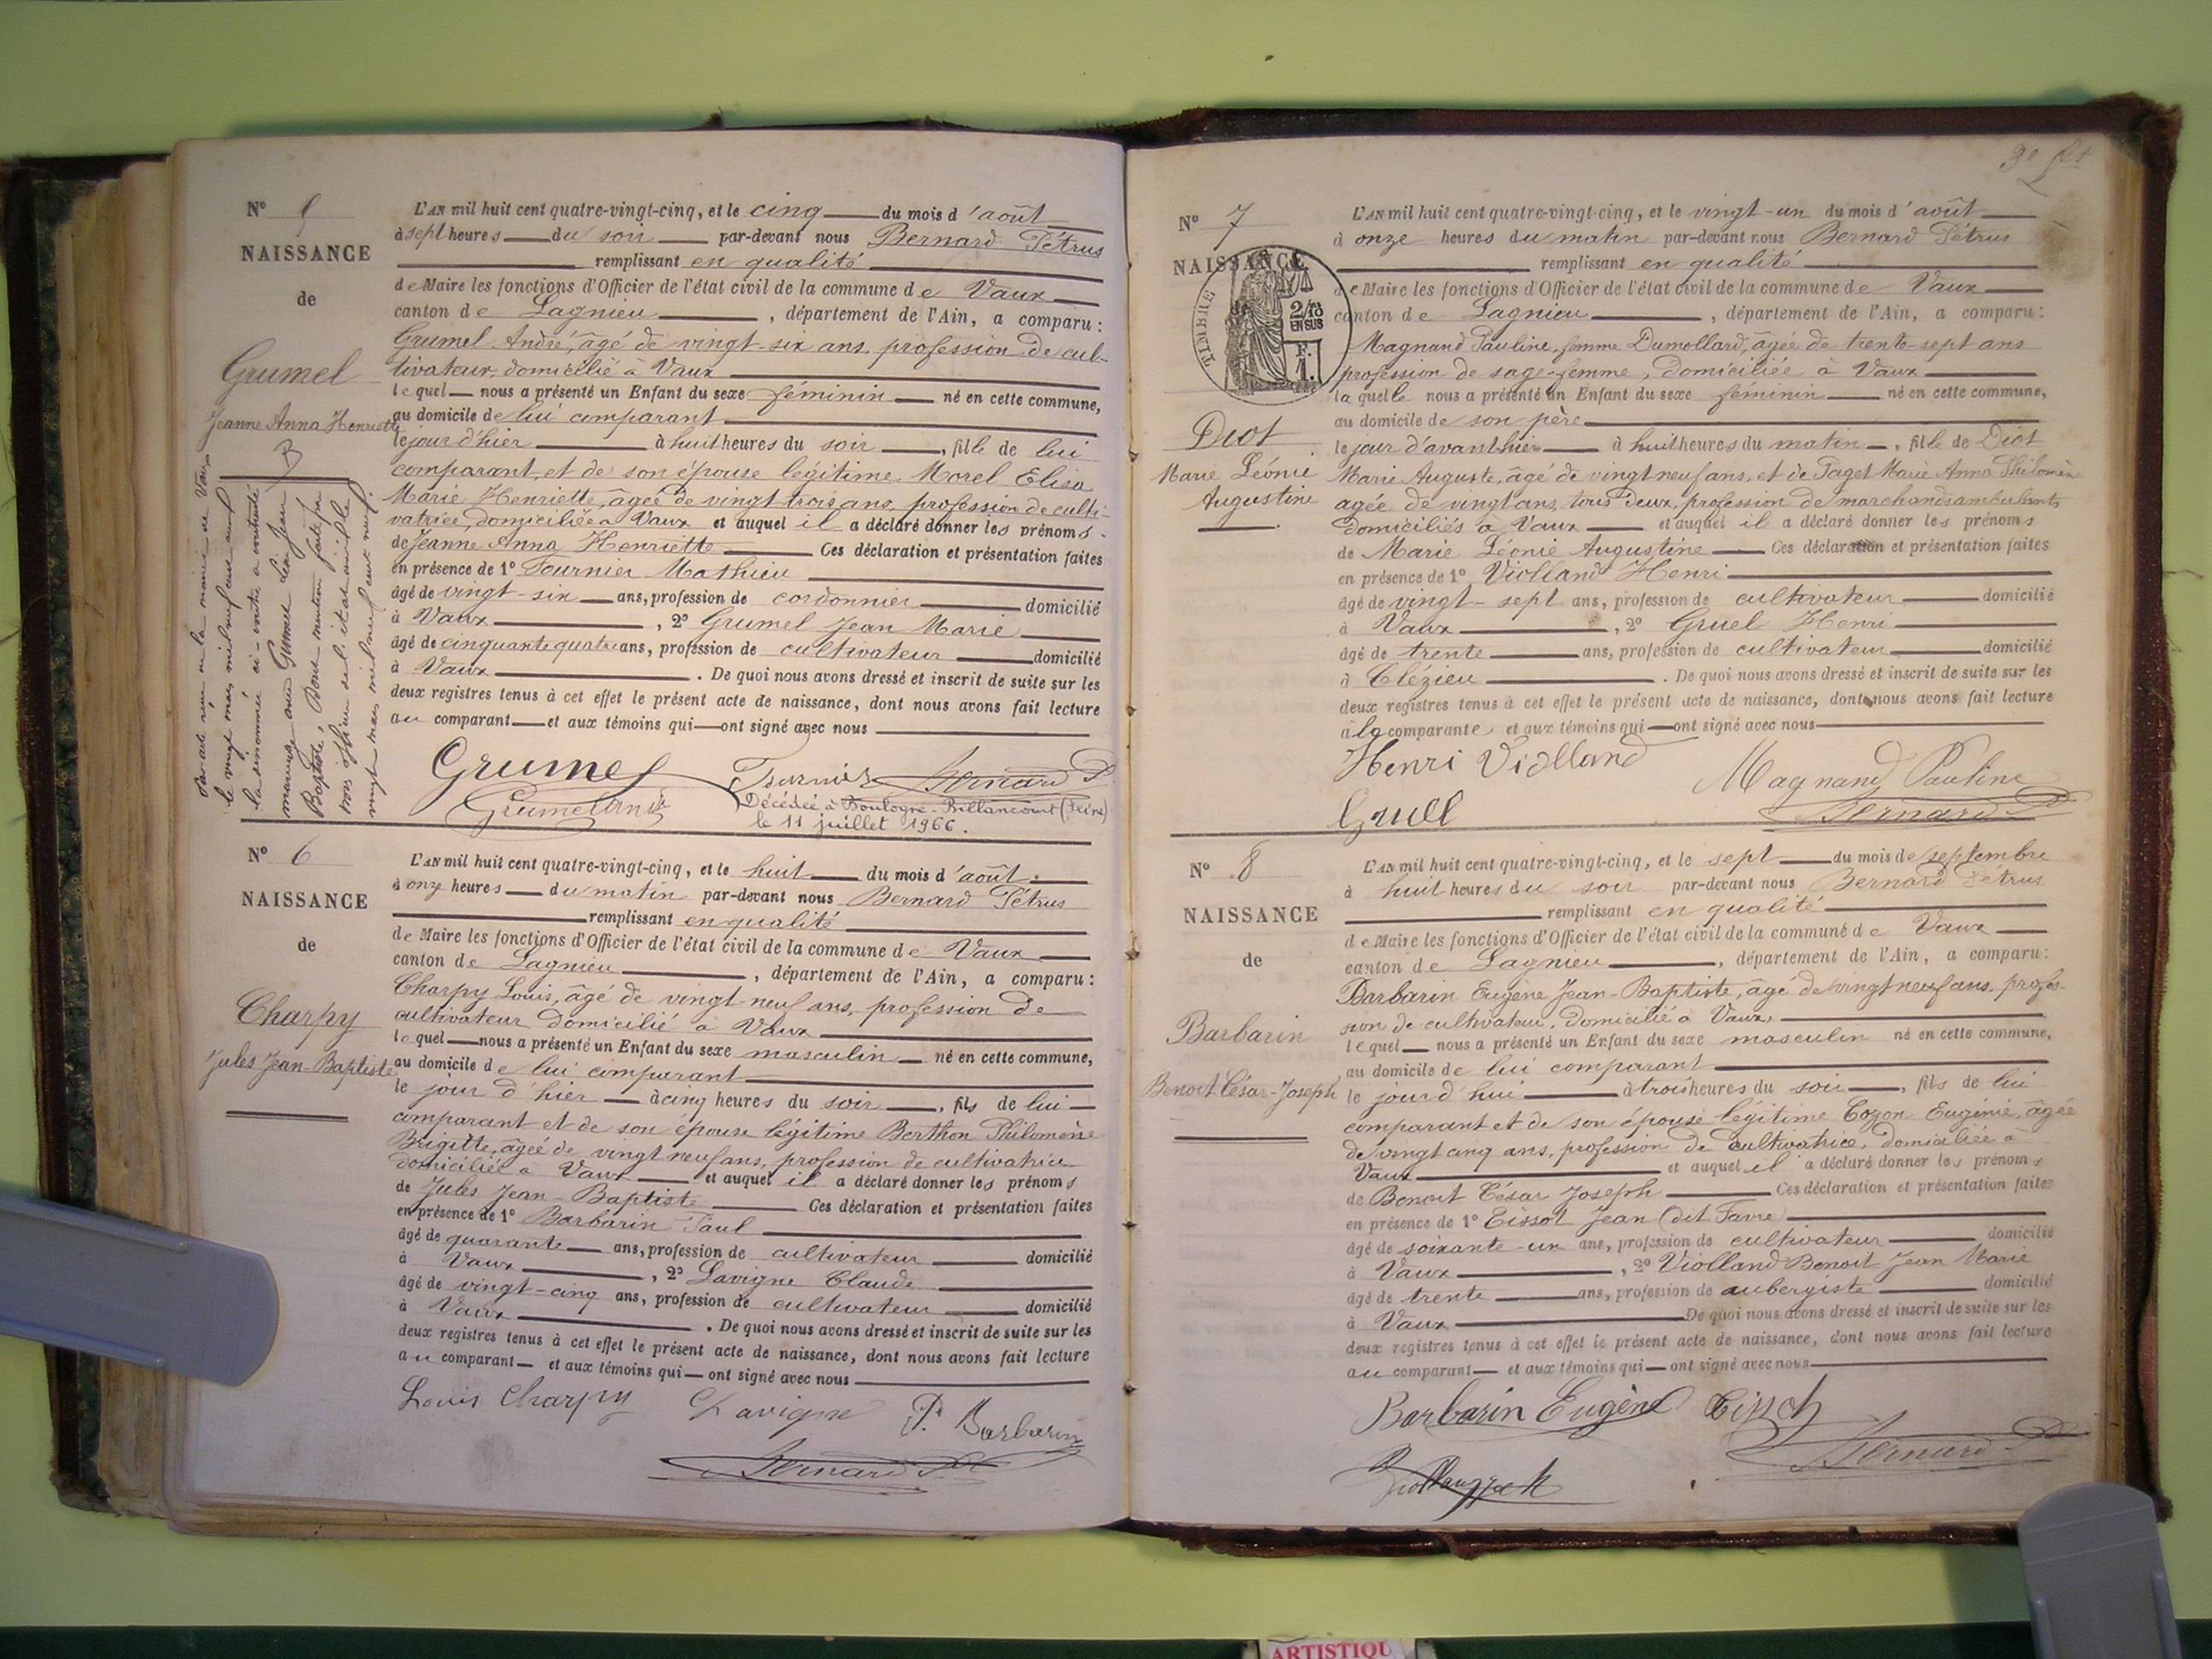 N° 5
NAISSANCE
de
Grumel
Jeanne Anna Henriette
L'AN mil huit cent quatre-vingt-cinq, et le cinq du mois d'août
à sept heures du soir par-devant nous Bernard Pétrus
remplissant en qualité
de Maire les fonctions d'Officier de l'état civil de la commune de Vaux
canton de Lagnieu, département de l'Ain, a comparu :
Grumel André, âgé de vingt-six ans, profession de cul-
tivateur domicilié à Vaux
lequel nous a présenté un Enfant du sexe féminin né en cette commune,
au domicile de lui comparant
le jour d'hier à huit heures du soir, fille de lui
comparant, et de son épouse légitime Morel Elisa
Marie Henriette, âgée de vingt-trois ans, profession de culti-
vatrice, domiciliée à Vaux et auquel il a déclaré donner les prénoms
de Jeanne Anna Henriette Ces déclaration et présentation faites
en présence de 1° Fournier Mathieu
âgé de vingt-six ans, profession de cordonnier domicilié
à Vaux, 2° Grumel Jean Marie
âgé de cinquante quatre ans, profession de cultivateur domicilié
à Vaux. De quoi nous avons dressé et inscrit de suite sur les
deux registres tenus à cet effet le présent acte de naissance, dont nous avons fait lecture
au comparant et aux témoins qui ont signé avec nous
Grumel Fournier Bernard P
Décédée à Boulogne-Billancourt (Seine)
le 11 juillet 1966.
Par acte reçu en la mairie de Vaux
le vingt mars mil neuf cent neuf
la dénommée ci-contre a contracté
mariage avec Grumel Léon Jean
Baptiste, Dont mention faite par
nous officier de l'état civil le
vingt mars mil neuf cent neuf.
N° 6
NAISSANCE
de
Charpy
Jules Jean-Baptiste
L'AN mil huit cent quatre-vingt-cinq, et le huit du mois d'août
à onze heures du matin par-devant nous Bernard Pétrus
remplissant en qualité
de Maire les fonctions d'Officier de l'état civil de la commune de Vaux
canton de Lagnieu, département de l'Ain, a comparu :
Charpy Louis, âgé de vingt-neuf ans, profession de
cultivateur domicilié à Vaux
lequel nous a présenté un Enfant du sexe masculin né en cette commune,
au domicile de lui comparant
le jour d'hier à cinq heures du soir, fils de lui
comparant et de son épouse légitime Berthon Philomène
Brigitte, âgée de vingt neuf ans, profession de cultivatrice
domiciliée à Vaux et auquel il a déclaré donner les prénoms
de Jules Jean-Baptiste Ces déclaration et présentation faites
en présence de 1° Barbarin Paul
âgé de quarante ans, profession de cultivateur domicilié
à Vaux, 2° Lavigne Claude
âgé de vingt-cinq ans, profession de cultivateur domicilié
à Vaux. De quoi nous avons dressé et inscrit de suite sur les
deux registres tenus à cet effet le présent acte de naissance, dont nous avons fait lecture
au comparant et aux témoins qui ont signé avec nous
Louis Charpy C Lavigne P. Barbarin
Bernard P
3e
N° 7
NAISSANCE
TIMBRE
2/10
EN SUS
F.
1.
de
Diot
Marie Léonie
Augustine
L'AN mil huit cent quatre-vingt-cinq, et le vingt-un du mois d'août
à onze heures du matin par-devant nous Bernard Pétrus
remplissant en qualité
de Maire les fonctions d'Officier de l'état civil de la commune de Vaux
canton de Lagnieu, département de l'Ain, a comparu :
Magnand Pauline, femme Dumollard, âgée de trente-sept ans
profession de sage-femme, Domiciliée à Vaux
laquelle nous a présenté un Enfant du sexe féminin né en cette commune,
au domicile de son père
le jour d'avant hier à huit heures du matin, fille de Diot
Marie Auguste, âgé de vingt neuf ans, et de Paget Marie Anna Philomène
âgée de vingt ans, tous deux, profession de marchands ambulants
domiciliés à Vaux et auquel il a déclaré donner les prénoms
de Marie Léonie Augustine Ces déclaration et présentation faites
en présence de 1° Violland Henri
âgé de vingt-sept ans, profession de cultivateur domicilié
à Vaux, 2° Gruel Henri
âgé de trente ans, profession de cultivateur domicilié
à Clézieu. De quoi nous avons dressé et inscrit de suite sur les
deux registres tenus à cet effet le présent acte de naissance, dont nous avons fait lecture
à la comparante et aux témoins qui ont signé avec nous
Henri Violland Magnand Pauline
Gruel Bernard P
N° 8
NAISSANCE
de
Barbarin
Benoit César-Joseph
L'AN mil huit cent quatre-vingt-cinq, et le sept du mois de septembre
à huit heures du soir par-devant nous Bernard Pétrus
remplissant en qualité
de Maire les fonctions d'Officier de l'état civil de la commune de Vaux
canton de Lagnieu, département de l'Ain, a comparu :
Barbarin Eugène Jean-Baptiste, âgé de vingt neuf ans, profes-
sion de cultivateur, domicilié à Vaux
lequel nous a présenté un Enfant du sexe masculin né en cette commune,
au domicile de lui comparant
le jour d'hui à trois heures du soir, fils de lui
comparant et de son épouse légitime Cozon Eugénie, âgée
de vingt cinq ans, profession de cultivatrice, domiciliée à
Vaux et auquel il a déclaré donner les prénoms
de Benoit César Joseph Ces déclaration et présentation faites
en présence de 1° Tissot Jean (dit Favre)
âgé de soixante-un ans, profession de cultivateur domicilié
à Vaux, 2° Violland Benoit Jean Marie
âgé de trente ans, profession de aubergiste domicilié
à Vaux De quoi nous avons dressé et inscrit de suite sur les
deux registres tenus à cet effet le présent acte de naissance, dont nous avons fait lecture
au comparant et aux témoins qui ont signé avec nous
Barbarin Eugène Tissot
Bernard P
ARTISTIQU